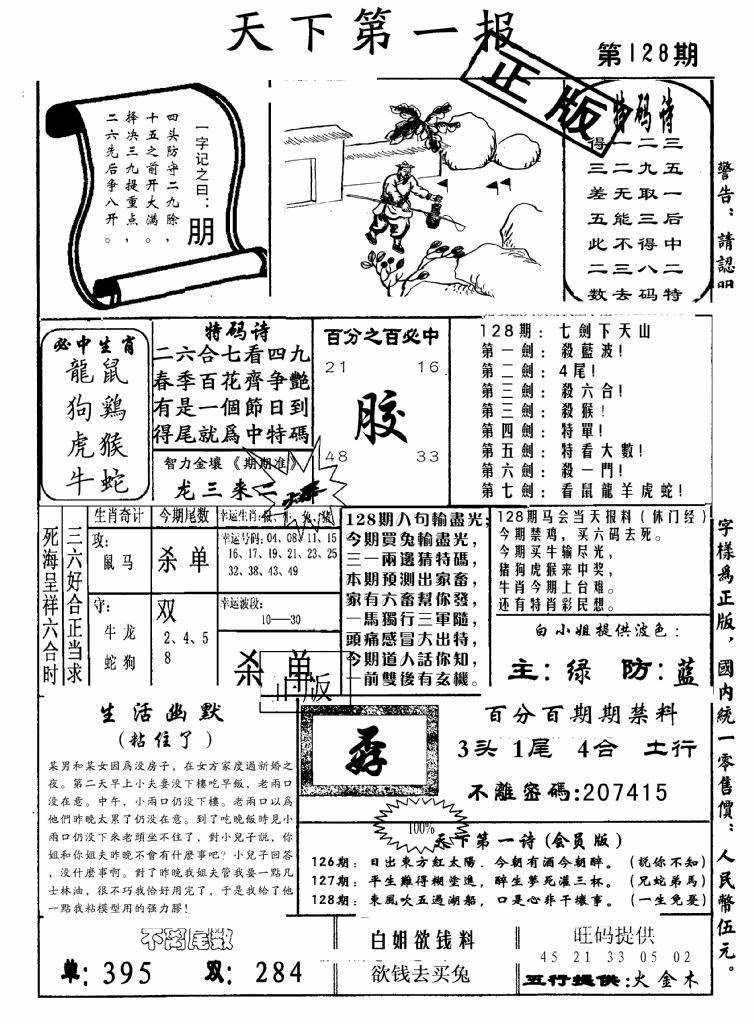 天下第一报
第128期
正版
一字记之曰：
朋
四头防守二九除，
十五之前开大满。
择决三九提重点，
二六先后争八开。
特码诗
得一二三
三二九五
差无取一
五能三后
此不得中
二三八二
数去码特
警告：請認明
字樣為正版，國内統一零售價：人民幣伍元。
必中生肖
龍鼠
狗鷄
虎猴
牛蛇
特码诗
二六合七看四九
春季百花齊争艷
有是一個節日到
得尾就爲中特碼
智力金壤《期期准》
龙三来二
百分之百必中
21 16
胶
48 33
128期：七劍下天山
第一劍：殺藍波！
第二劍：4尾！
第三劍：殺六合！
第三劍：殺猴！
第四劍：特單！
第五劍：特看大數！
第六劍：殺一門！
第七劍：看鼠龍羊虎蛇！
死海呈祥六合时
三六好合正当求
生肖奇计
攻：
鼠马
守：
牛龙
蛇狗
今期尾数
杀单
双
2、4、5
8
幸运生肖：
幸运号码：04、08、11、15
16、17、19、21、23、25
32、38、43、49
幸运波段：
10—30
杀单
正版
128期八句輸盡光；
今期買兔輸盡光，
三一兩邊猜特碼，
本期預測出家畜，
家有六畜幫你發，
一馬獨行三軍隨，
頭痛感冒大出特，
今期道人話你知，
一前雙後有玄機。
128期马会当天报料（休门经）
今期禁鸡，买六码去死。
今期买牛输尽光，
猪狗虎猴来中奖，
牛肖今期上台难。
还有特肖彩民想。
白小姐提供波色：
主：绿 防：蓝
生活幽默
（粘住了）
某男和某女因爲没房子，在女方家度過新婚之
夜。第二天早上小夫妻没下樓吃早飯，老兩口
没在意。中午，小兩口仍没下樓。老兩口以爲
他們昨晚太累了仍没在意。到了吃晚飯時見小
兩口仍没下來老頭坐不住了，對小兒子説，你
姐和你姐夫昨晚不會有什麽事吧？小兒子回答
，没什麽事啊。對了昨晚我姐夫管我要一點凡
士林油，很不巧我恰好用完了，于是我给了他
一點我粘模型用的强力膠！
百分百期期禁料
3头 1尾 4合 土行
不離密碼：207415
100%
天下第一诗（会员版）
126期：日出東方紅太陽．今朝有酒今朝醉。（説你不知）
127期：平生難得糊塗進，醉生夢死灌三杯。（兄蛇弟馬）
128期：東風吹五過湖船，口是心非干壞事。（一生免憂）
不离尾数
单：395 双：284
白姐欲钱料
欲钱去买兔
旺码提供
45 21 33 05 02
五行提供：火金木